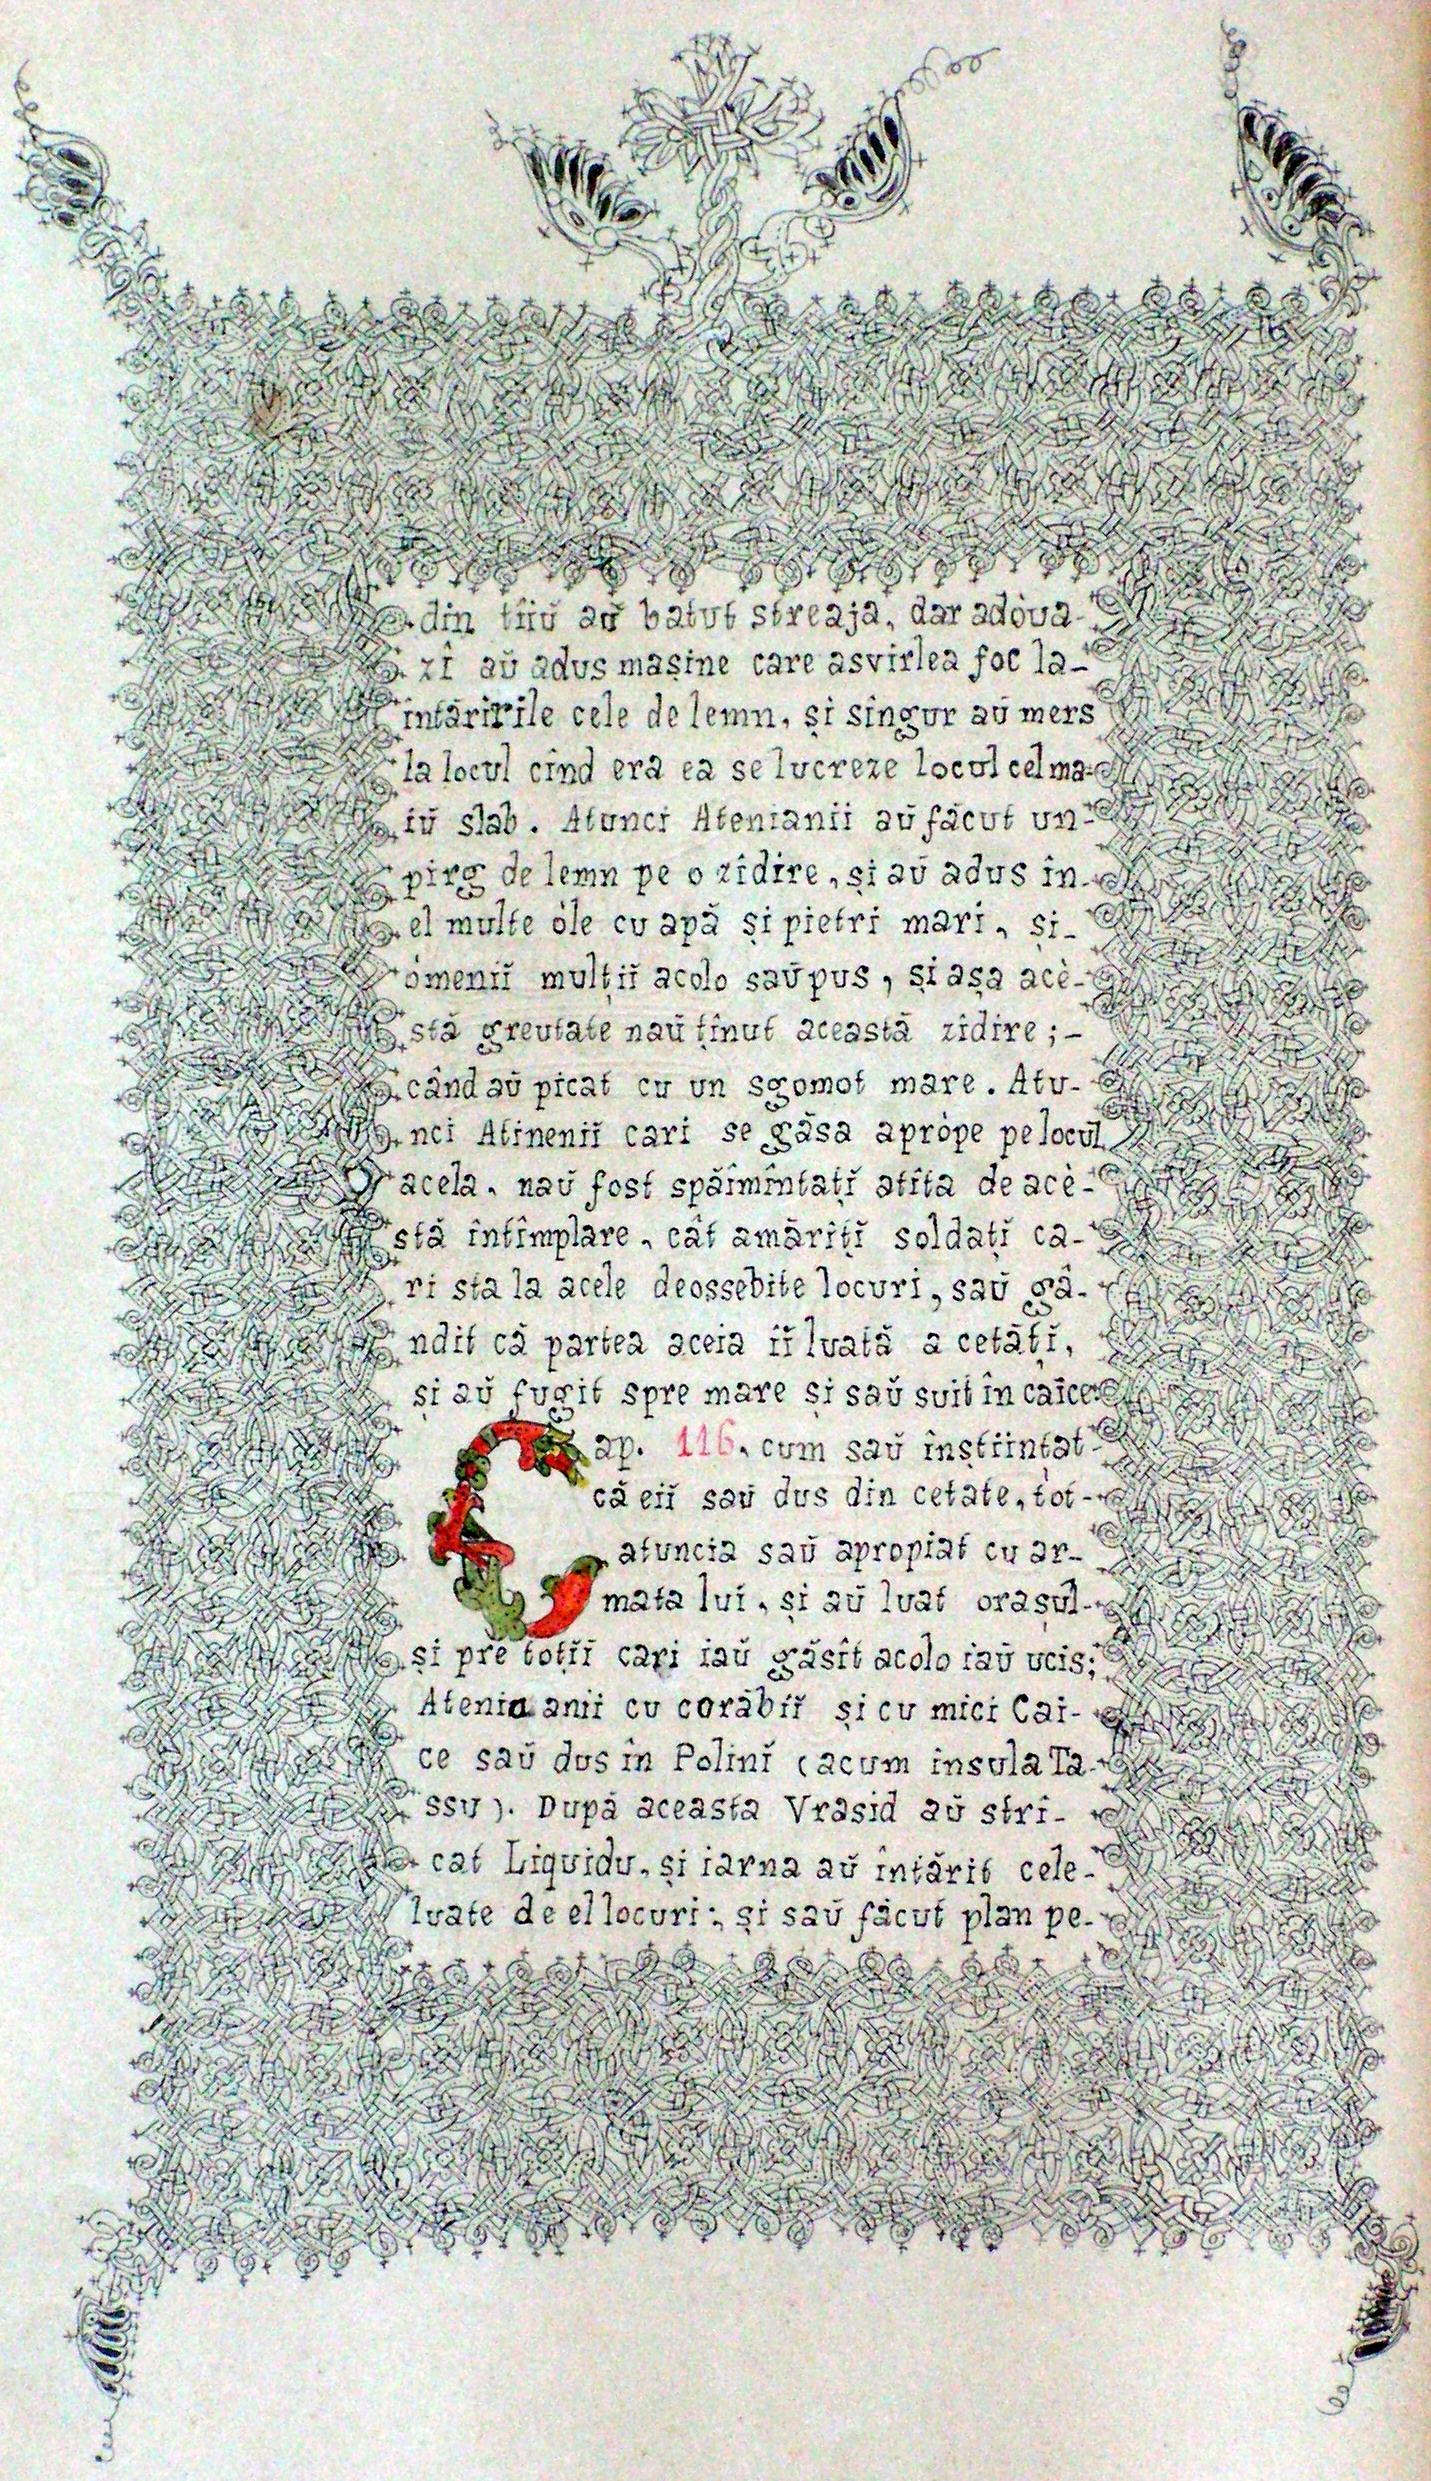 din tîiŭ aŭ batut streaja, dar adòua-
zî aŭ adus mașine care asvirlea foc la-
întăririle cele de lemn, și sîngur aŭ mers
la locul cînd era ea se lucreze locul cel ma-
iŭ slab. Atunci Atenianii aŭ făcut un-
pirg de lemn pe o zîdire, și aŭ adus în-
el multe òle cu apă și pietri mari, și-
òmeniĭ mulțiĭ acolo saŭ pus, și așa acè-
stă greutate naŭ ținut această zîdire;-
când aŭ picat cu un sgomot mare. Atu-
nci Atineniĭ cari se găsa apròpe pe locul
acela, naŭ fost spăimîntațĭ atîta de acè-
stă întîmplare, cât amărițĭ soldațĭ ca-
ri sta la acele deossebite locuri, saŭ gâ-
ndit că partea aceia iĭ luată a cetățĭ,
și aŭ fugit spre mare și saŭ suit în caice:
Cap. 116. cum saŭ înștiințat-
că eiĭ saŭ dus din cetate, tot-
atuncia saŭ apropiat cu ar-
mata lui, și aŭ luat orașul-
și pre toțiĭ cari iaŭ găsît acolo iaŭ ucis;
Atenia anii cu corăbiĭ și cu mici Cai-
ce saŭ dus în Polinĭ (acum insula Ta-
ssu). După aceasta Vrasid aŭ stri-
cat Liquidu, și iarna aŭ întărit cele-
luate de el locuri:, și saŭ făcut plan pe-